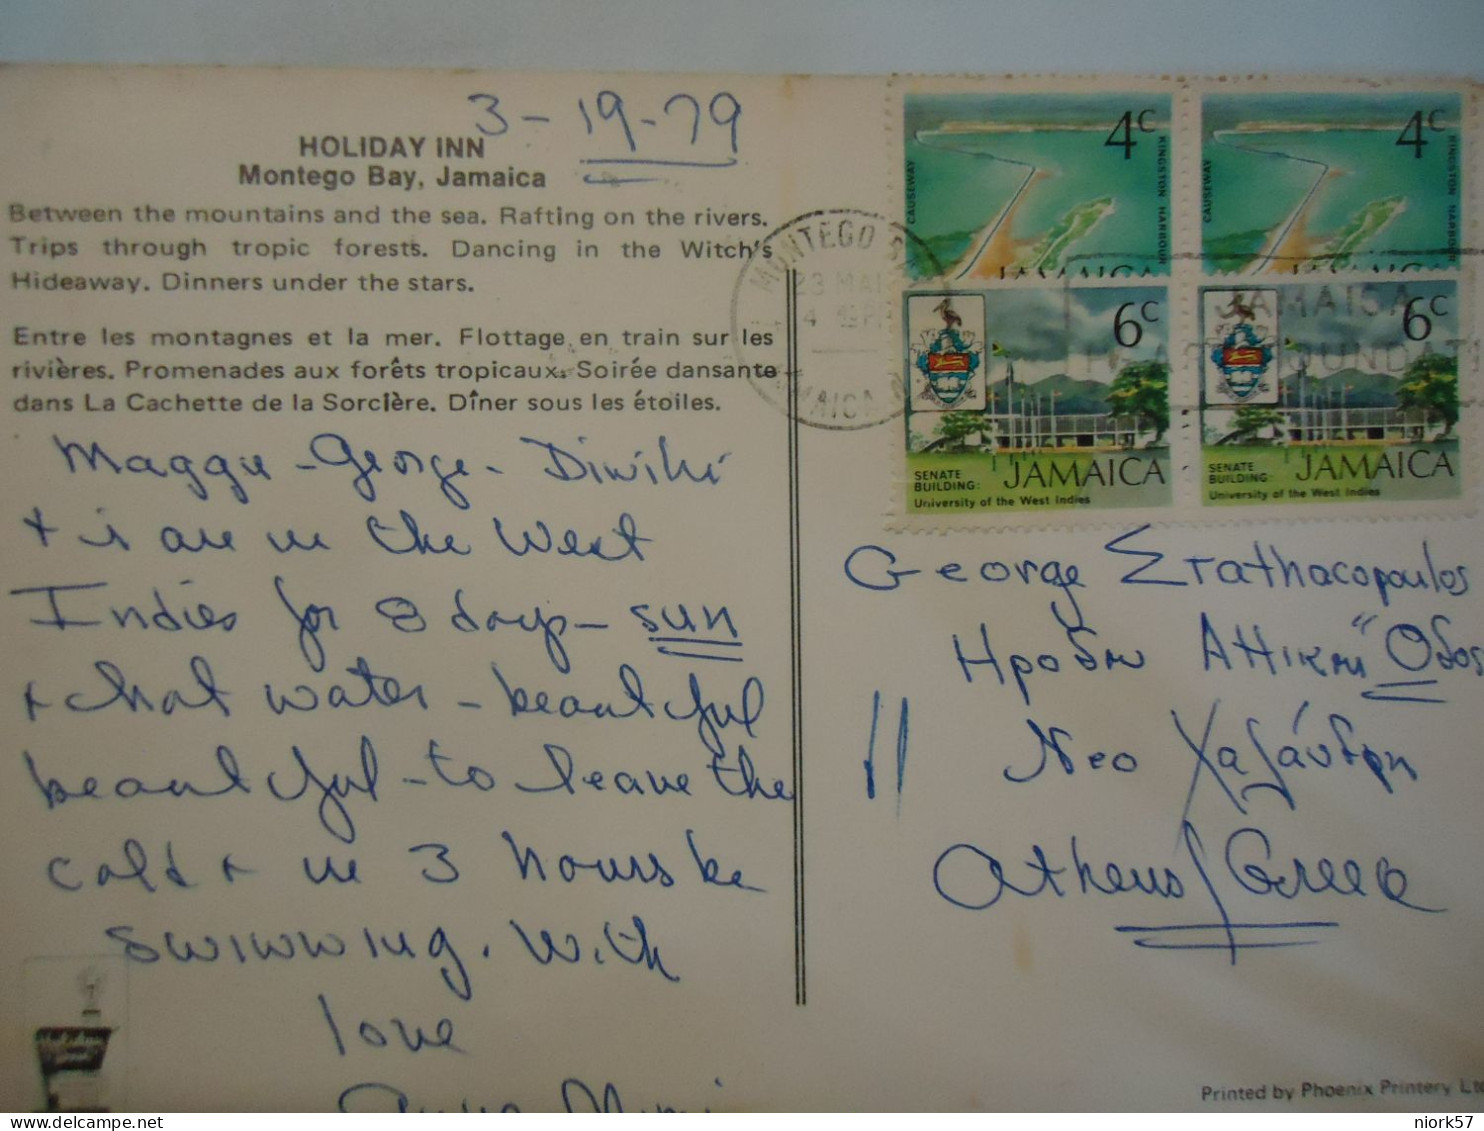 3-19-79
HOLIDAY INN
Montego Bay, Jamaica
Between the mountains and the sea. Rafting on the rivers.
Trips through tropic forests. Dancing in the Witch's
Hideaway. Dinners under the stars.
Entre les montagnes et la mer. Flottage en train sur les
rivières. Promenades aux forêts tropicaux. Soirée dansante
dans La Cachette de la Sorcière. Dîner sous les étoiles.
George -
are in the West
Indies for 8 days - sun
+ hot water - beautiful
beautiful - to leave the
cold + in 3 hours be
swimming. With
love
4c
CAUSEWAY
KINGSTON HARBOUR
JAMAICA
4c
CAUSEWAY
KINGSTON HARBOUR
JAMAICA
6c
SENATE
BUILDING: JAMAICA
University of the West Indies
6c
SENATE
BUILDING: JAMAICA
University of the West Indies
MONTEGO
23 MA
4
JAMAICA
JAMAICA
HEART FOUNDATI
George Στathacopoulos
Ηρώδη Αττικού Οδος
Νεο Χαλάνδρι
Athens Greece
Holiday Inn
Printed by Phoenix Printery Lt
niork57